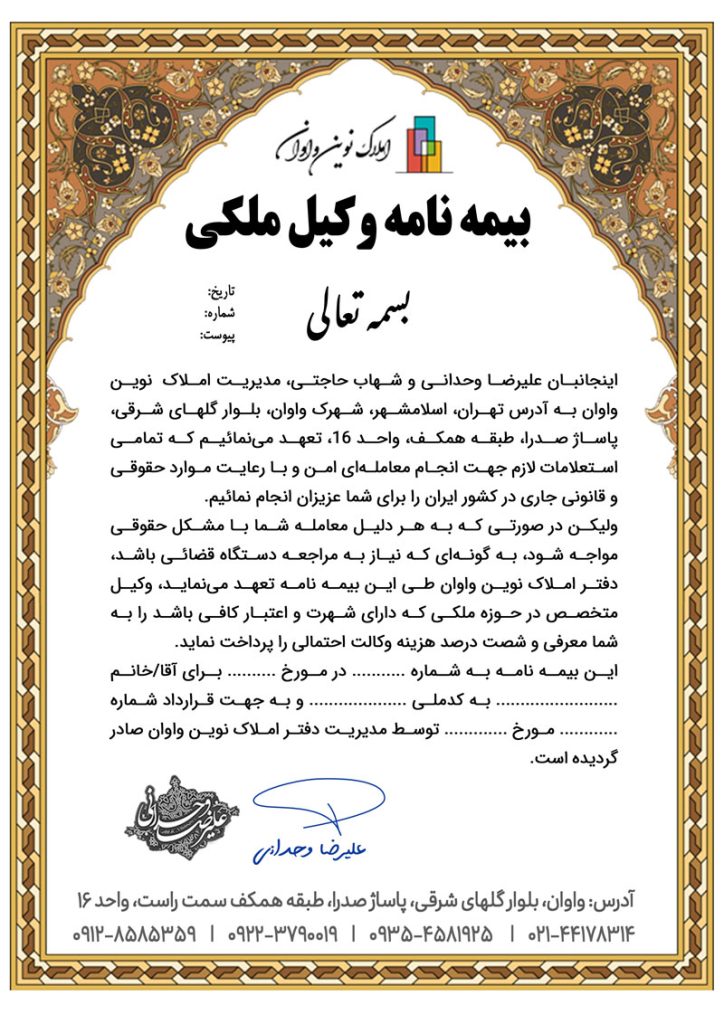 املاک نوین واوان
بیمه نامه وکیل ملکی
بسمه تعالی
تاریخ:
شماره:
پیوست:
اینجانبان علیرضا وحدانی و شهاب حاجتی، مدیریت املاک نوین
واوان به آدرس تهران، اسلامشهر، شهرک واوان، بلوار گلهای شرقی،
پاساژ صدرا، طبقه همکف، واحد 16، تعهد می‌نمائیم که تمامی
استعلامات لازم جهت انجام معامله‌ای امن و با رعایت موارد حقوقی
و قانونی جاری در کشور ایران را برای شما عزیزان انجام نمائیم.
ولیکن در صورتی که به هر دلیل معامله شما با مشکل حقوقی
مواجه شود، به گونه‌ای که نیاز به مراجعه دستگاه قضائی باشد،
دفتر املاک نوین واوان طی این بیمه نامه تعهد می‌نماید، وکیل
متخصص در حوزه ملکی که دارای شهرت و اعتبار کافی باشد را به
شما معرفی و شصت درصد هزینه وکالت احتمالی را پرداخت نماید.
این بیمه نامه به شماره ........... در مورخ .......... برای آقا/خانم
......................... به کدملی .................... و به جهت قرارداد شماره
............ مورخ ............. توسط مدیریت دفتر املاک نوین واوان صادر
گردیده است.
علیرضا وحدانی
علیرضا وحدانی
آدرس: واوان، بلوار گلهای شرقی، پاساژ صدرا، طبقه همکف سمت راست، واحد ۱۶
۰۲۱-۴۴۱۷۸۳۱۴ | ۰۹۳۵-۴۵۸۱۹۲۵ | ۰۹۲۲-۳۷۹۰۰۱۹ | ۰۹۱۲-۸۵۸۵۳۵۹